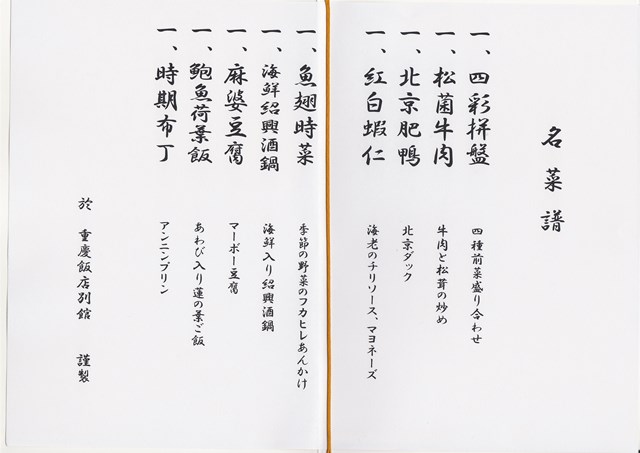 名菜譜
一、四彩拼盤
四種前菜盛り合わせ
一、松菌牛肉
牛肉と松茸の炒め
一、北京肥鴨
北京ダック
一、紅白蝦仁
海老のチリソース、マヨネーズ
一、魚翅時菜
季節の野菜のフカヒレあんかけ
一、海鮮紹興酒鍋
海鮮入り紹興酒鍋
一、麻婆豆腐
マーボー豆腐
一、鮑魚荷葉飯
あわび入り蓮の葉ご飯
一、時期布丁
アンニンプリン
於 重慶飯店別館 謹製